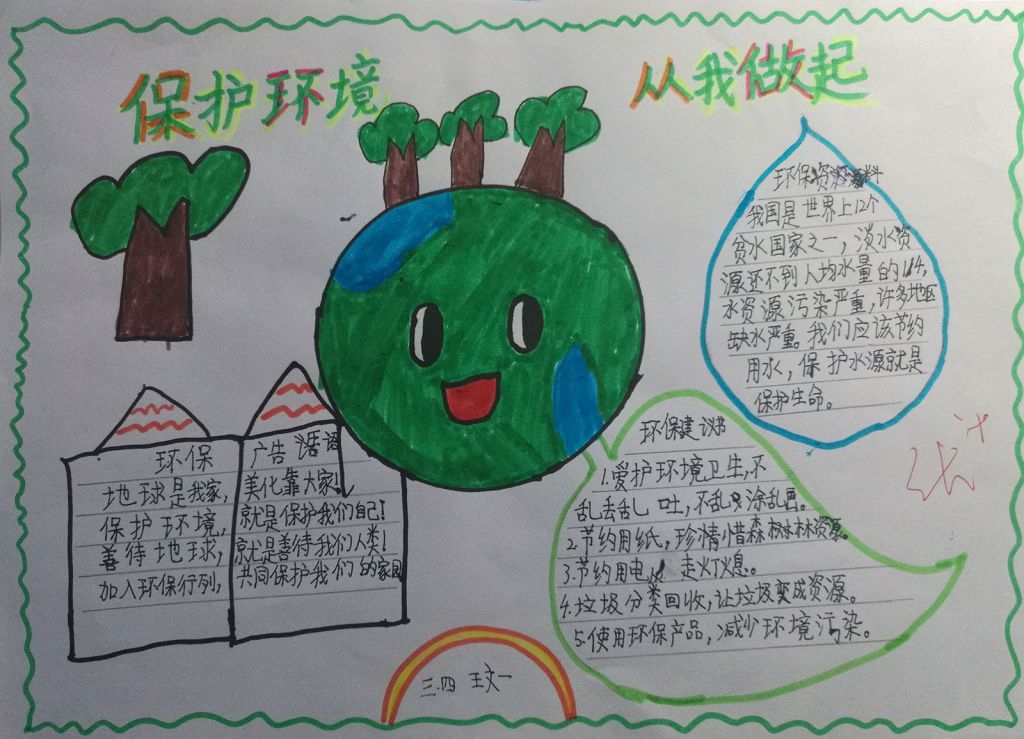 保护环境
从我做起
环保资源资料
我国是世界上12个
贫水国家之一，淡水资
源还不到人均水量的1/4,
水资源污染严重，许多地区
缺水严重。我们应该节约
用水，保护水源就是
保护生命。
环保
地球是我家，
保护环境，
善待地球，
加入环保行列，
广告 话语
美化靠大家！
就是保护我们自己！
就是善待我们人类！
共同保护我们的家园
环保建议书
1.爱护环境卫生，不
乱丢乱吐，不乱涂乱画。
2.节约用纸，珍惜森林资源。
3.节约用电，走灯熄。
4.垃圾分类回收，让垃圾变成资源。
5.使用环保产品，减少环境污染。
三.四 王文一
优+